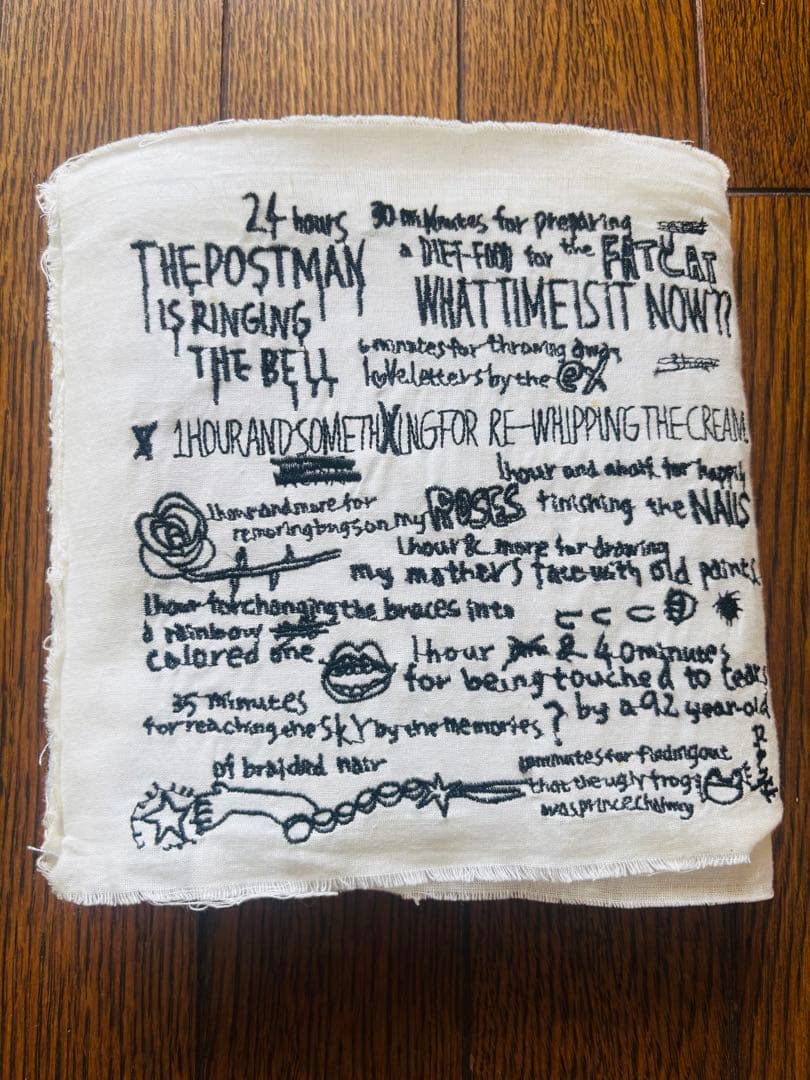 24 hours
THE POSTMAN
IS RINGING
THE BELL
30 minutes for preparing
a DIET-FOOD for the FATCAT
WHAT TIME IS IT NOW??
6 minutes for throwing away
love letters by the @X
X 1HOUR AND SOMETHXING FOR RE-WHIPPING THE CREAM
1hour and a half for happily
finishing the NAILS
1hour and more for
removing bugs on my ROSES
1hour & more for drawing
my mothers face with old paints
1hour for changing the braces into
a rainbow
colored one
1hour & 40minutes
for being touched to tears
by a 92 year-old
35 minutes
for reaching the SKY by the memories?
of braided hair
minutes for finding out
that the ugly frog
was prince